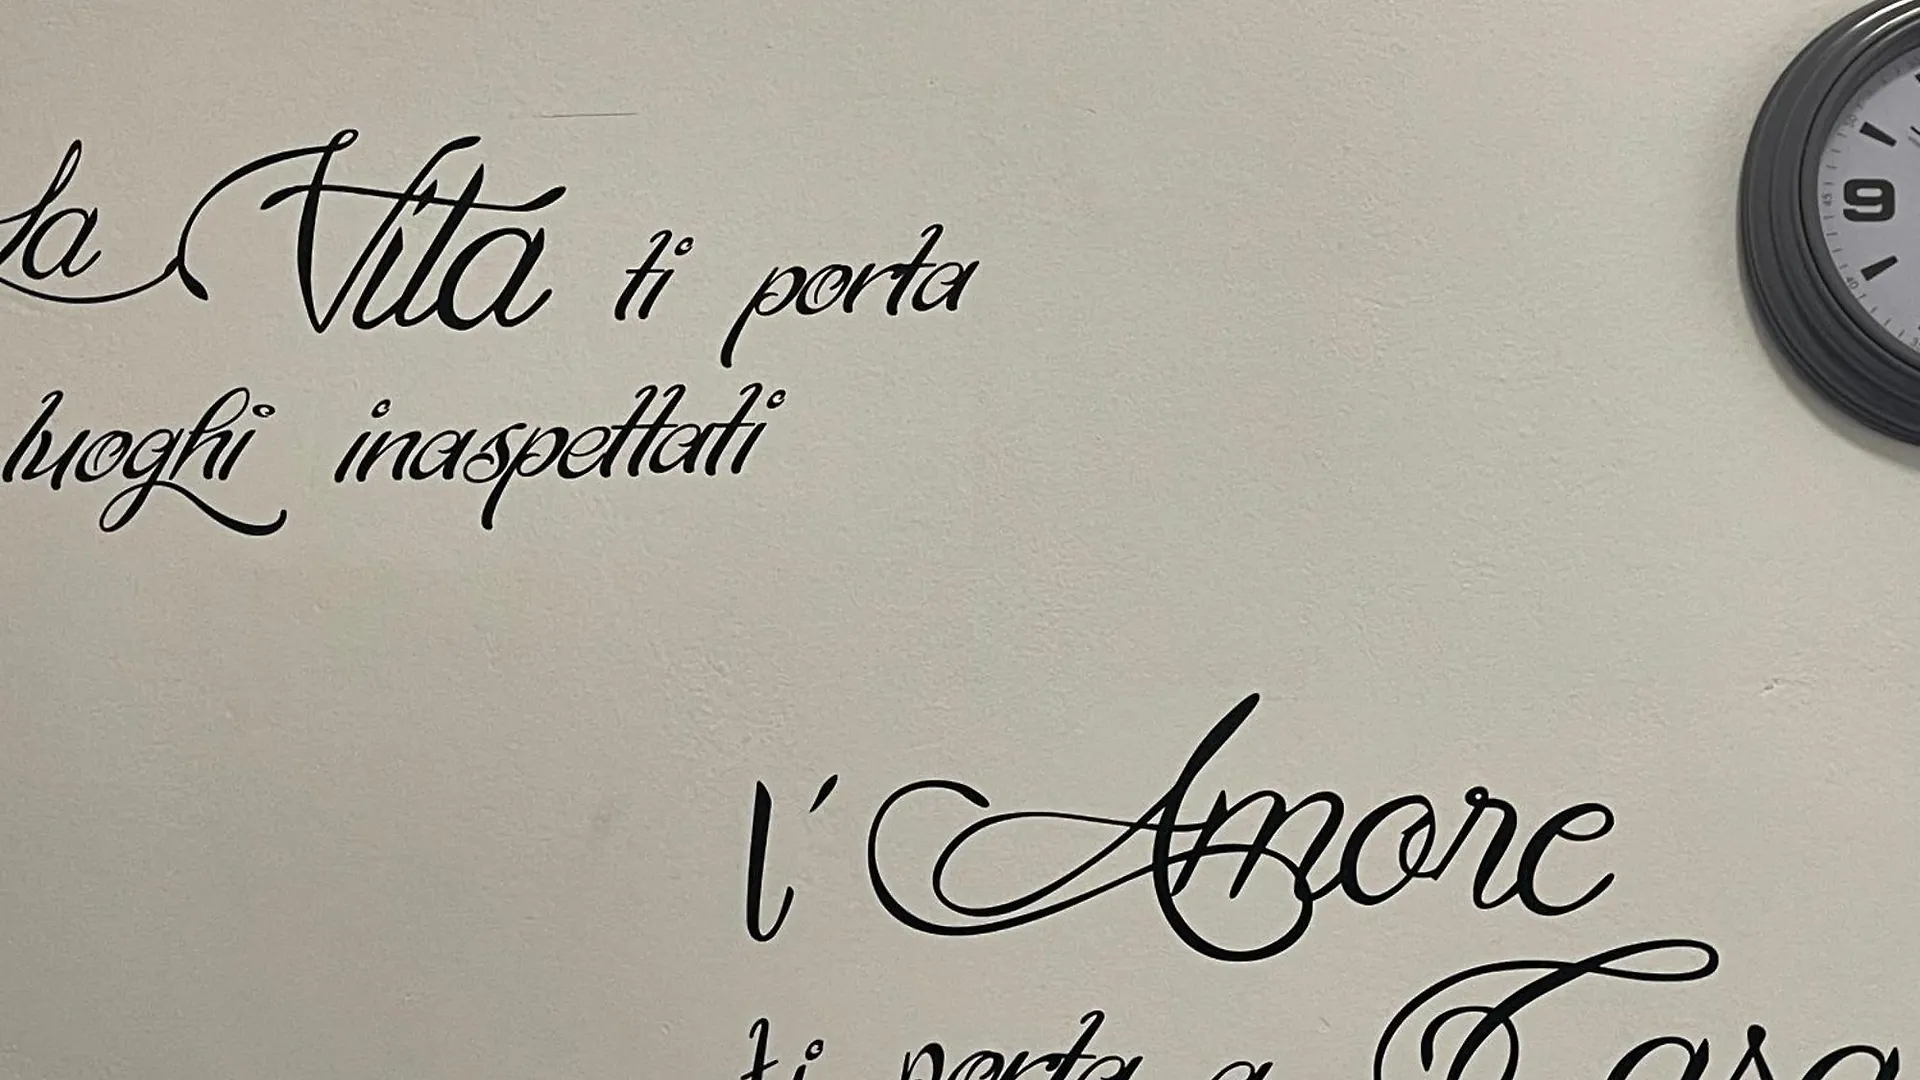 La Vita ti porta
luoghi inaspettati
9
l'Amore
ti porta a Casa